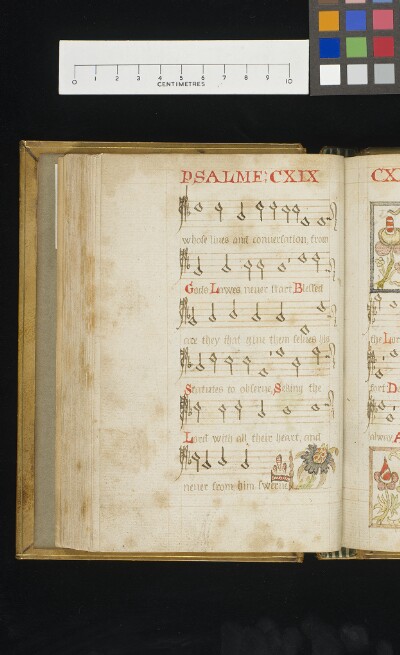 0 1 2 3 4 5 6 7 8 9 10
CENTIMETRES
PSALME: CXIX
CX
whose lives and conversation, from
Gods Lawes never start Blessed
are they that give them selves his
Statutes to observe, Seking the
Lord with all their heart, and
never from him swerve
the Lor
fort D
alway A